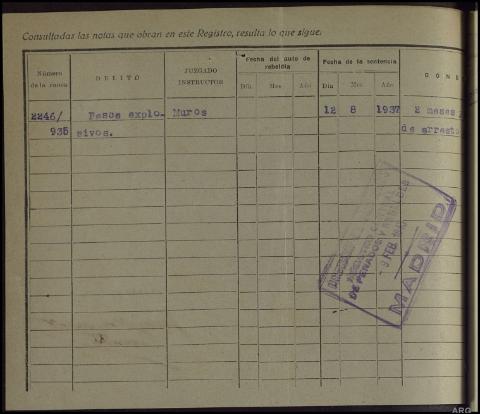 Consultadas las notas que obran en este Registro, resulta lo que sigue:
Número de la causa
DELITO
JUZGADO INSTRUCTOR
Fecha del auto de rebeldía
Día Mes Año
Fecha de la sentencia
Día Mes Año
CON
2246/ Pesca explo- Muros 12 8 1937 2 meses
935 sivos. de arresto
DE PENADOS Y REBELDES
FEB.
MADRID
ARG